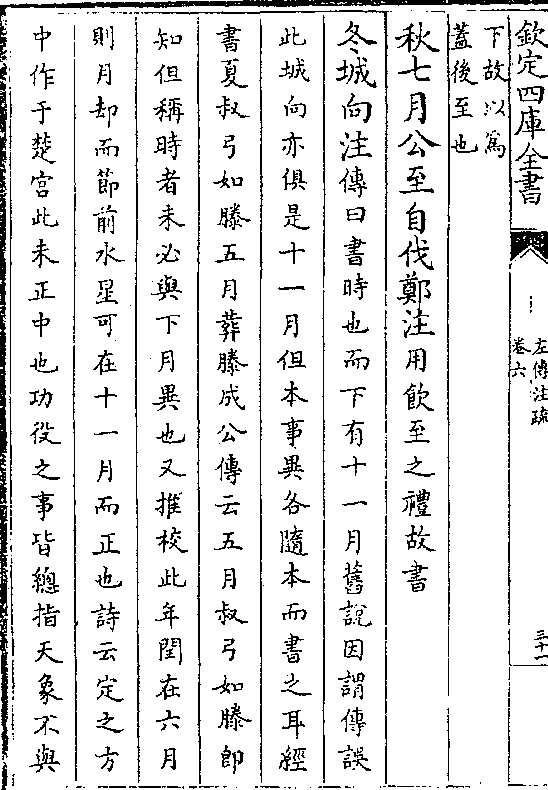 欽定四庫全書
左傳注疏
卷六
三十一
下故以爲
蓋後至也
秋七月公至自伐鄭注用飲至之禮故書
冬城向注傳曰書時也而下有十一月舊說因謂傳誤
此城向亦俱是十一月但本事異各隨本而書之耳經
書夏叔弓如滕五月葬滕成公傳云五月叔弓如滕即
知但稱時者未必與下月異也又推校此年閏在六月
則月却而節前水星可在十一月而正也詩云定之方
中作于楚宫此未正中也功役之事皆總指天象不與